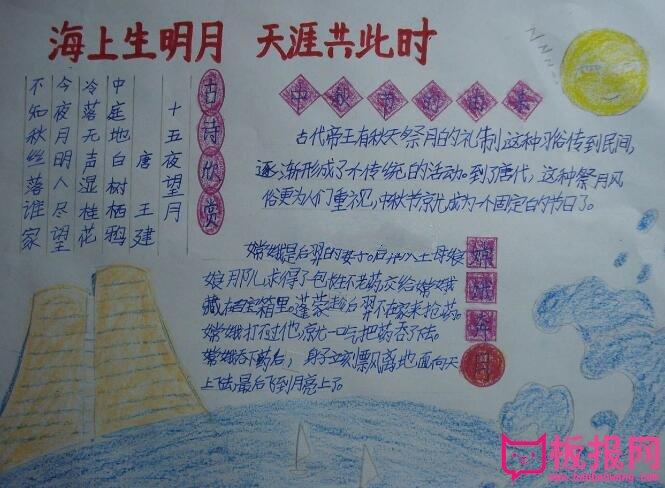 海上生明月 天涯共此时
古诗欣赏
十五夜望月
唐 王建
中庭地白树栖鸦
冷落无声湿桂花
今夜月明人尽望
不知秋丝落谁家
中秋节的由来
古代帝王有秋天祭月的礼制,这种习俗传到民间,
逐渐形成了个传统的活动。到了唐代,这种祭月风
俗更为人们重视,中秋节就成为一个固定的节日了。
嫦娥奔月
嫦娥是后羿的妻子。后羿 王母娘
娘 求得了 不老药交给嫦娥
藏在百宝箱里。蓬蒙趁后羿不在家来抢药。
嫦娥打不过他,就一口气把药吞了下去。
嫦娥吞下药后,身子立刻飘 离地面向天
上 去,最后飞到月亮上了。
板报网